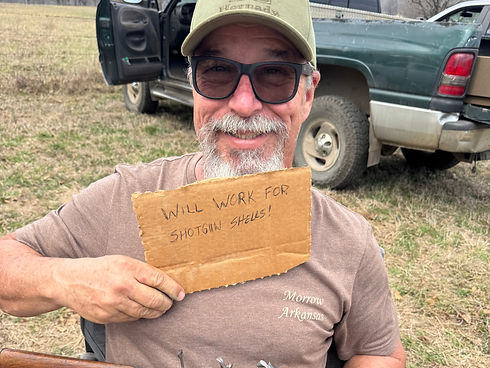 Hornady
WILL WORK FOR
SHOTGUN SHELLS!
Morrow
Arkansas